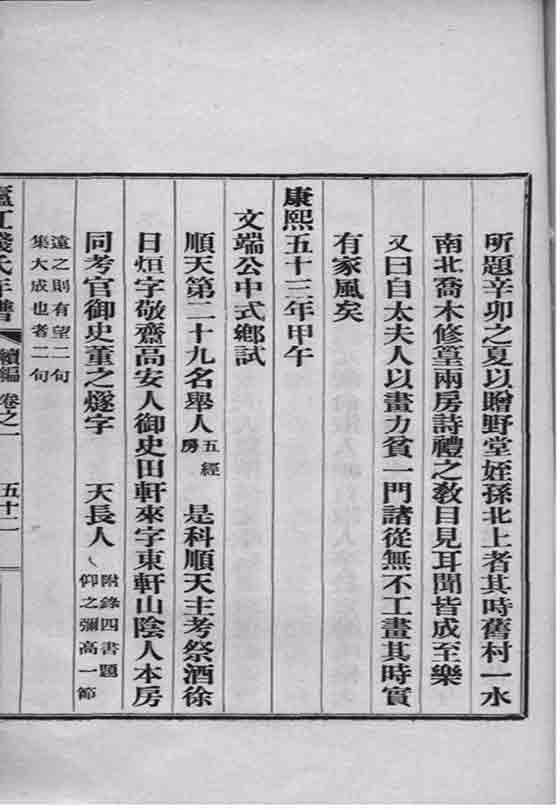 所題辛卯之夏以贈野堂姪孫北上者其時舊村一水
南北喬木修篁兩房詩禮之敎目見耳聞皆成至樂
又曰自太夫人以畫力貧一門諸從無不工畫其時實
有家風矣
康熙五十三年甲午
文端公中式鄉試
順天第二十九名舉人五經房 是科順天主考祭酒徐
日烜字敬齋高安人御史田軒來字東軒山陰人本房
同考官御史董之燧字 天長人附錄四書題仰之彌高一節
遠之則有望二句
集大成也者二句
廬江錢氏年譜 續編卷之一 五十二